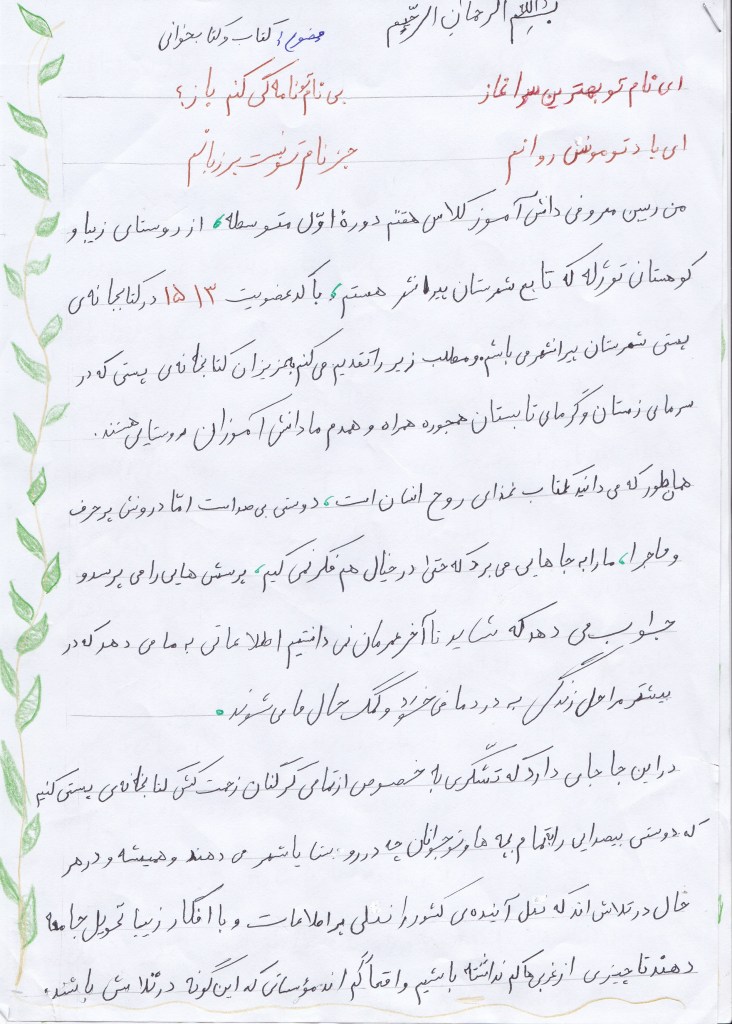 بسم الله الرحمان الرحیم
موضوع: کتاب و کتابخوانی
ای نام تو بهترین سراغاز بی نام تو نامه کی کنم باز؛
ای یاد تو مونس روانم جز نام تو نیست بر زبانم
من ریبین معروفی دانش آموز کلاس هفتم دورهٔ اوّل متوسطه، از روستای زیبا و
کوهستانی توژله که تابع شهرستان پیرانشهر هستم، با کد عضویت ۱۵۱۳ در کتابخانه‌ی
پستی شهرستان پیرانشهر می باشم. و مطلب زیر را تقدیم می کنم به عزیزان کتابخانه‌ی پستی که در
سرمای زمستان و گرمای تابستان همجوره همراه و همدم ما دانش آموزان روستایی هستند.
همانطور که می دانید کتاب غذای روح انسان است، دوستی بی صداست امّا درونش پر حرف
و ماجرا، ما را به جاهایی می برد که حتیٰ در خیال هم فکر نمی کنیم، پرسش هایی را می پرسد و
جواب می دهد که شاید تا آخر عمرمان نمی دانستیم اطلاعاتی به ما می دهد که در
بیشتر مراحل زندگی به درد ما می خورد و کمک حال ما می شوند.
در این جا جای دارد که تشّکری به خصوص از تمامی کارکنان زحمت کش کتابخانه‌ی پستی کنیم
که دوستی بیصدایی را به تمام بچه ها و نوجوانان چه در روستا یا شهر می دهند و همیشه و در هر
حال در تلاش اند که نسل آینده‌ی کشور را نسلی پر اطلاعات و با افکار زیبا تحویل جامعه
دهند تا چیزی از غربی ها کم نداشته باشیم و اقعاً کم اند مؤسساتی که این گونه در تلاش باشند،